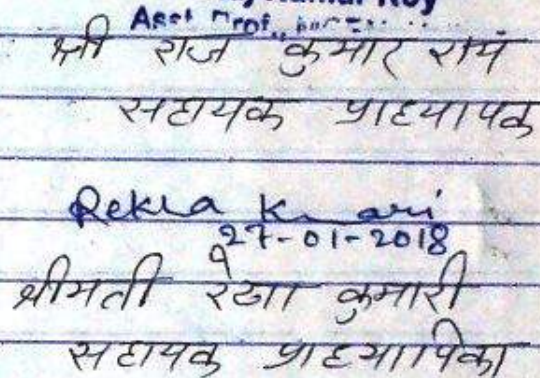 Kumar Roy
Asst Prof.,
श्री राज कुमार रायं
सहायक प्राध्यापक
Rekha Kumari
27-01-2018
श्रीमती रेखा कुमारी
सहायक प्राध्यापिका